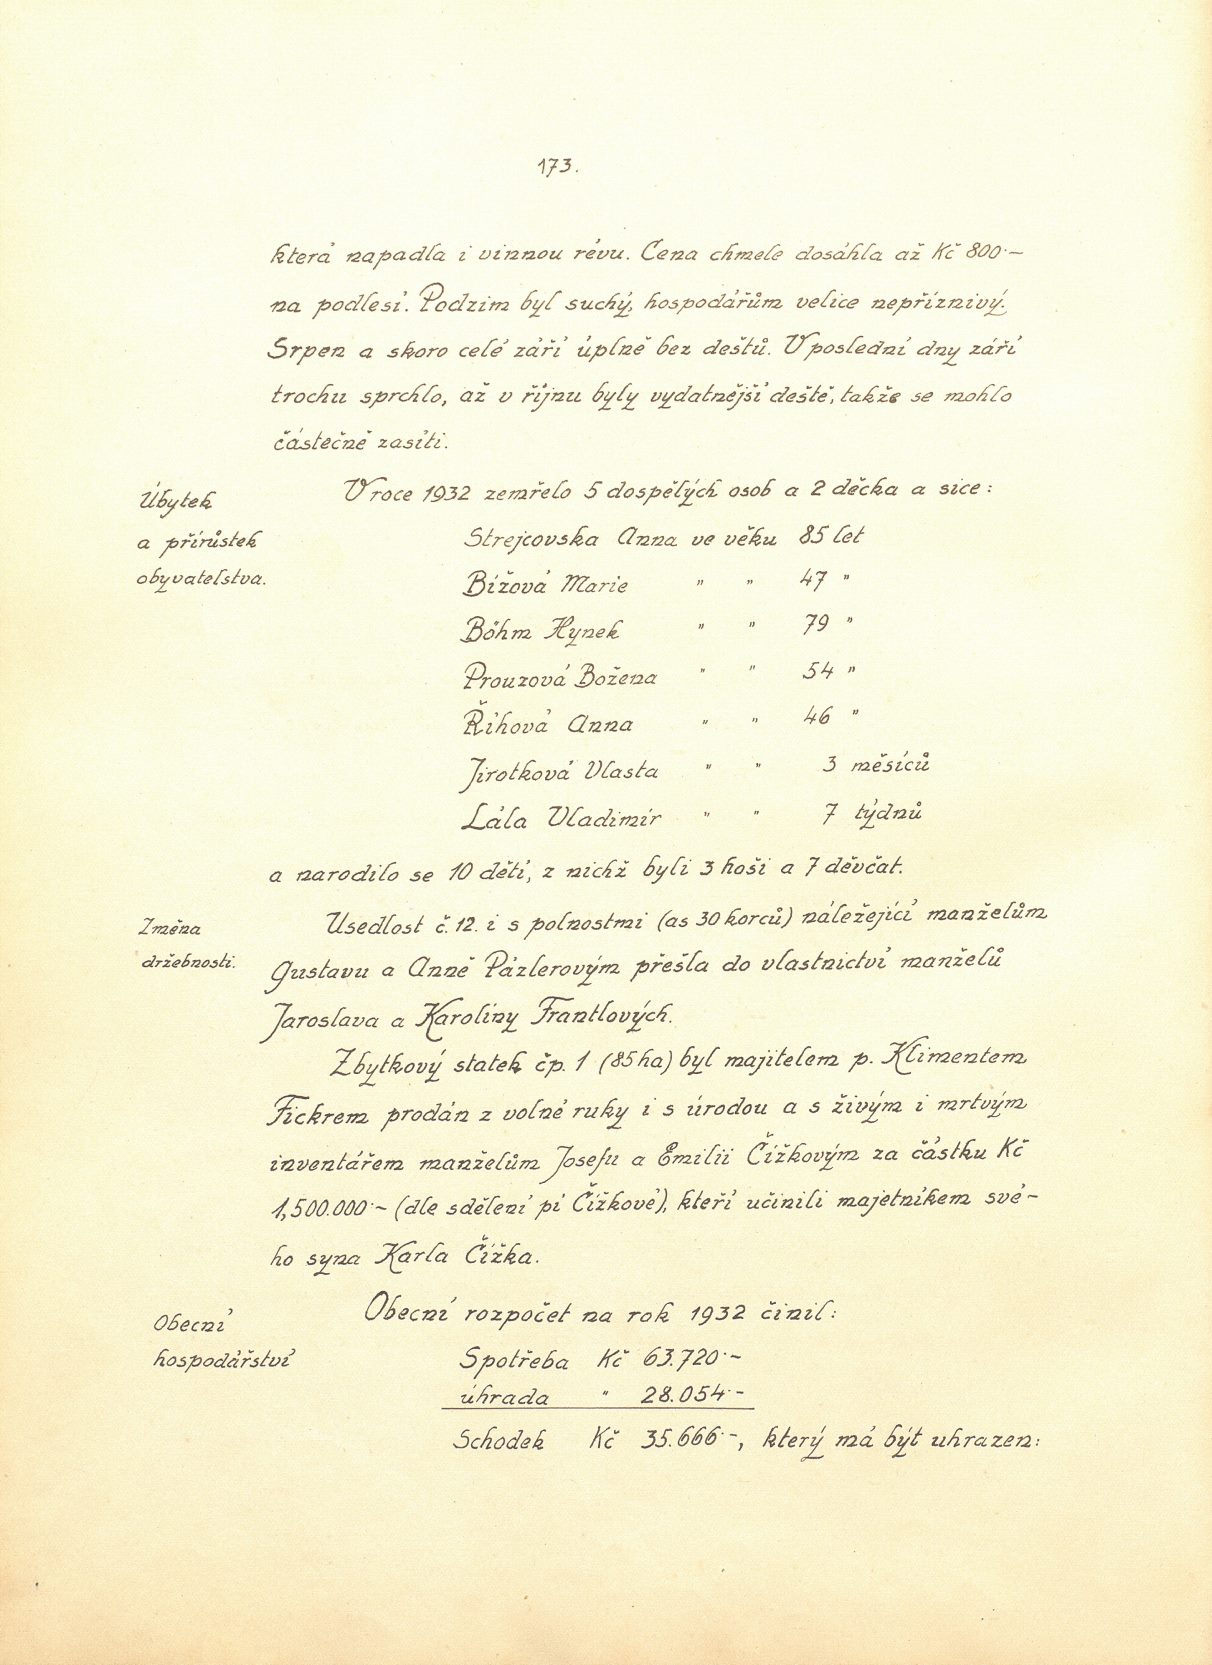 173.
která napadla i vinnou révu. Cena chmele dosáhla až Kč 800·–
na podlesí. Podzim byl suchý, hospodářům velice nepříznivý.
Srpen a skoro celé září úplně bez deštů. V poslední dny září
trochu sprchlo, až v říjnu byly vydatnější deště, takže se mohlo
částečně zasíti.
Úbytek
a přírůstek
obyvatelstva.
V roce 1932 zemřelo 5 dospělých osob a 2 děcka a sice:
Strejcovska Anna ve věku 85 let
Bížová Marie " " 47 "
Böhm Hynek " " 79 "
Prouzová Božena " " 54 "
Říhová Anna " " 46 "
Jirotková Vlasta " " 3 měsíců
Lála Vladimír " " 7 týdnů
a narodilo se 10 dětí, z nichž byli 3 hoši a 7 děvčat.
Změna
držebnosti.
Usedlost č. 12. i s polnostmi (as 30 korců) náležející manželům
Gustavu a Anně Pázlerovým přešla do vlastnictví manželů
Jaroslava a Karolíny Frantlových.
Zbytkový statek čp. 1 (85 ha) byl majitelem p. Klimentem
Fickrem prodán z volné ruky i s úrodou a s živým i mrtvým
inventářem manželům Josefu a Emilii Čížkovým za částku Kč
1,500.000·– (dle sdělení pí Čížkové), kteří učinili majetníkem své-
ho syna Karla Čížka.
Obecní
hospodářství
Obecní rozpočet na rok 1932 činil:
Spotřeba Kč 63.720·–
úhrada " 28.054·–
Schodek Kč 35.666·–, který má být uhrazen: